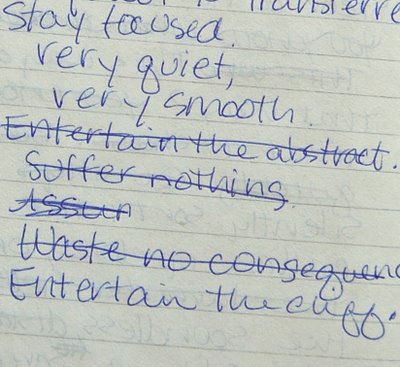 Transferre
Stay focused.
very quiet,
very smooth.
Entertain the abstract.
Suffer nothing.
Assum
Waste no consequen
Entertain the cliff.